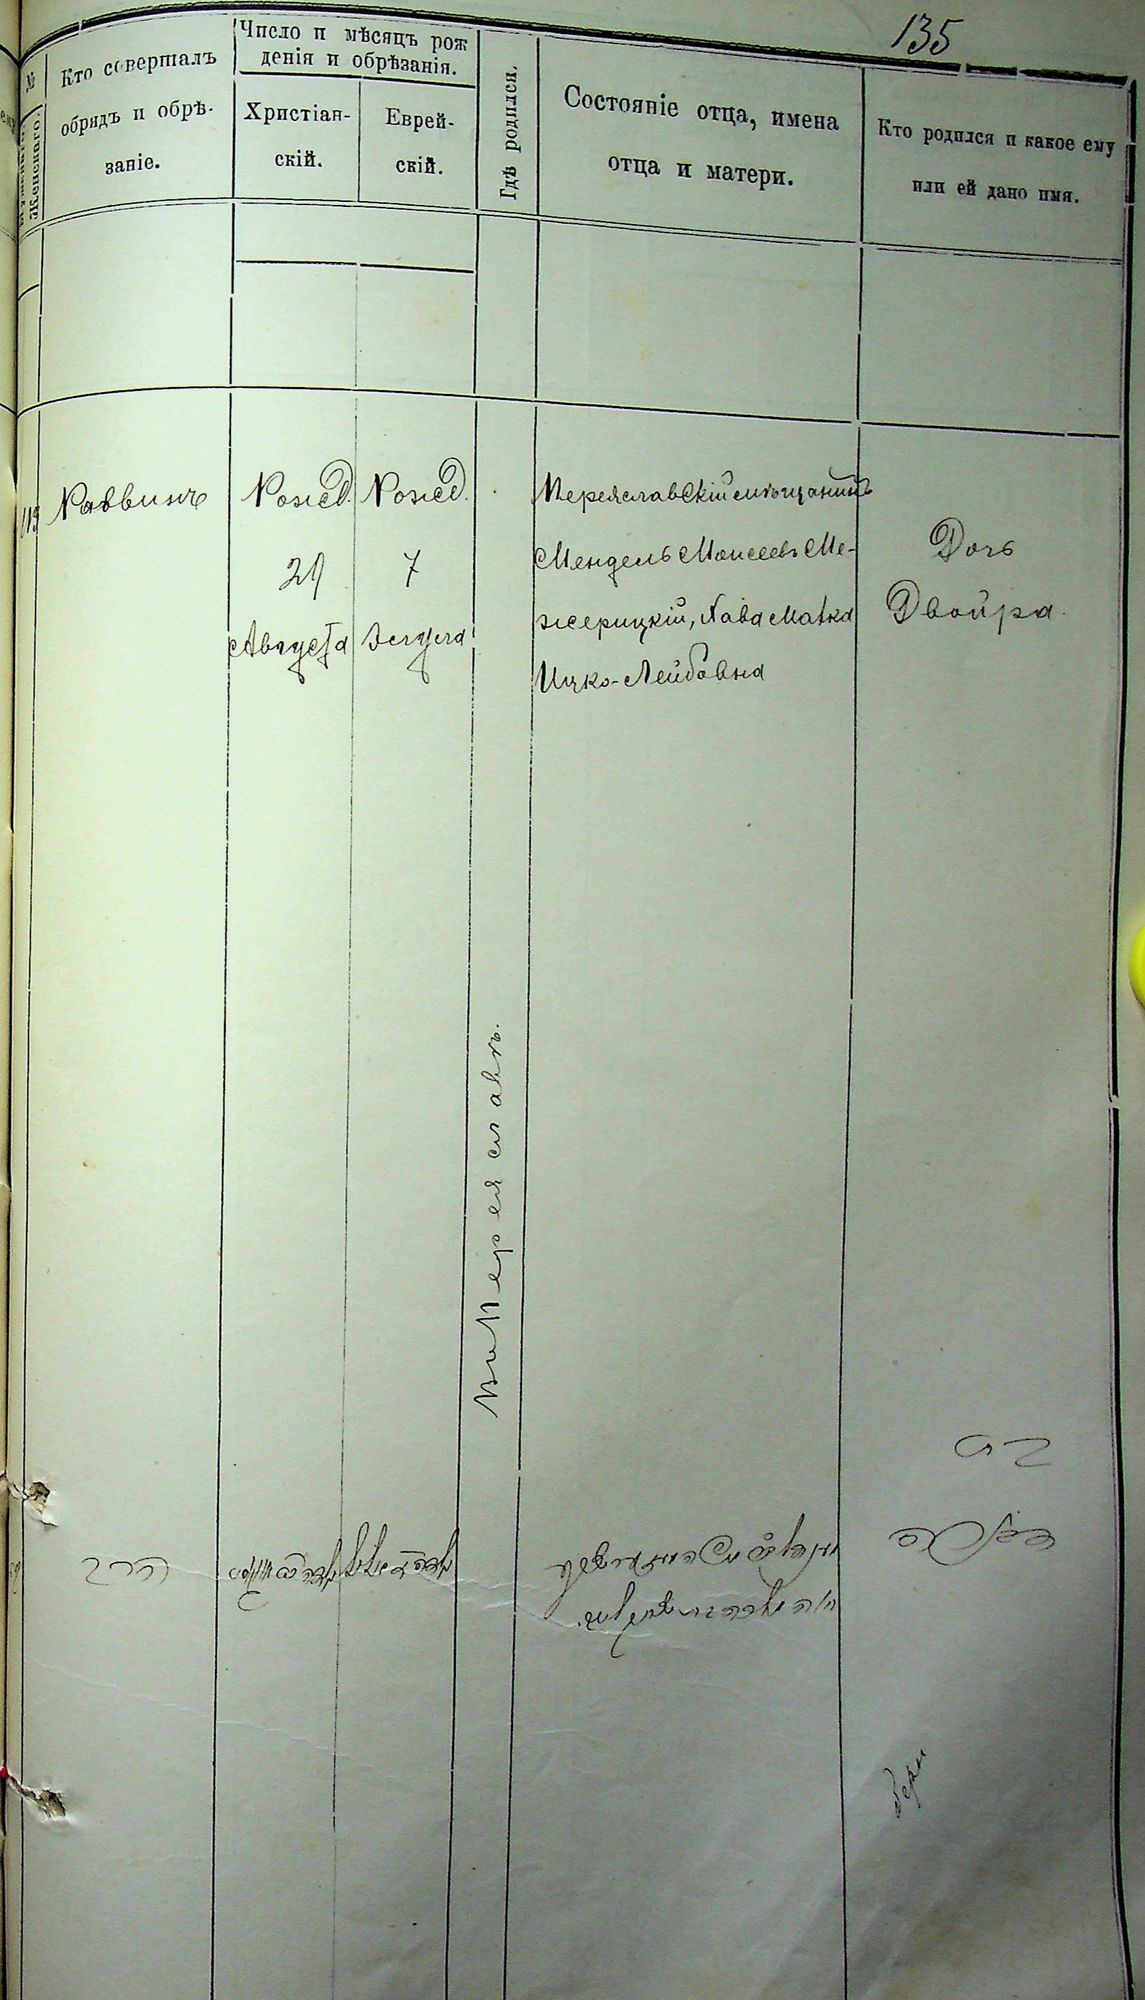 135
№
Женскаго.
Кто совершалъ
обрядъ и обрѣ-
заніе.
Число и мѣсяцъ рож
денія и обрѣзанія.
Христіан-
скій.
Еврей-
скій.
Гдѣ родился.
Состояніе отца, имена
отца и матери.
Кто родился и какое ему
или ей дано имя.
119
Раввинъ
Рожед.
29
Августа
Рожед.
7
Элула
Въ Переяславѣ.
Переяславскій мѣщанинъ
Мендель Моисеевъ Ме-
жерицкій, Хава Малка
Ицко-Лейбовна
Дочь
Двойра
בת
דבורה
הרב